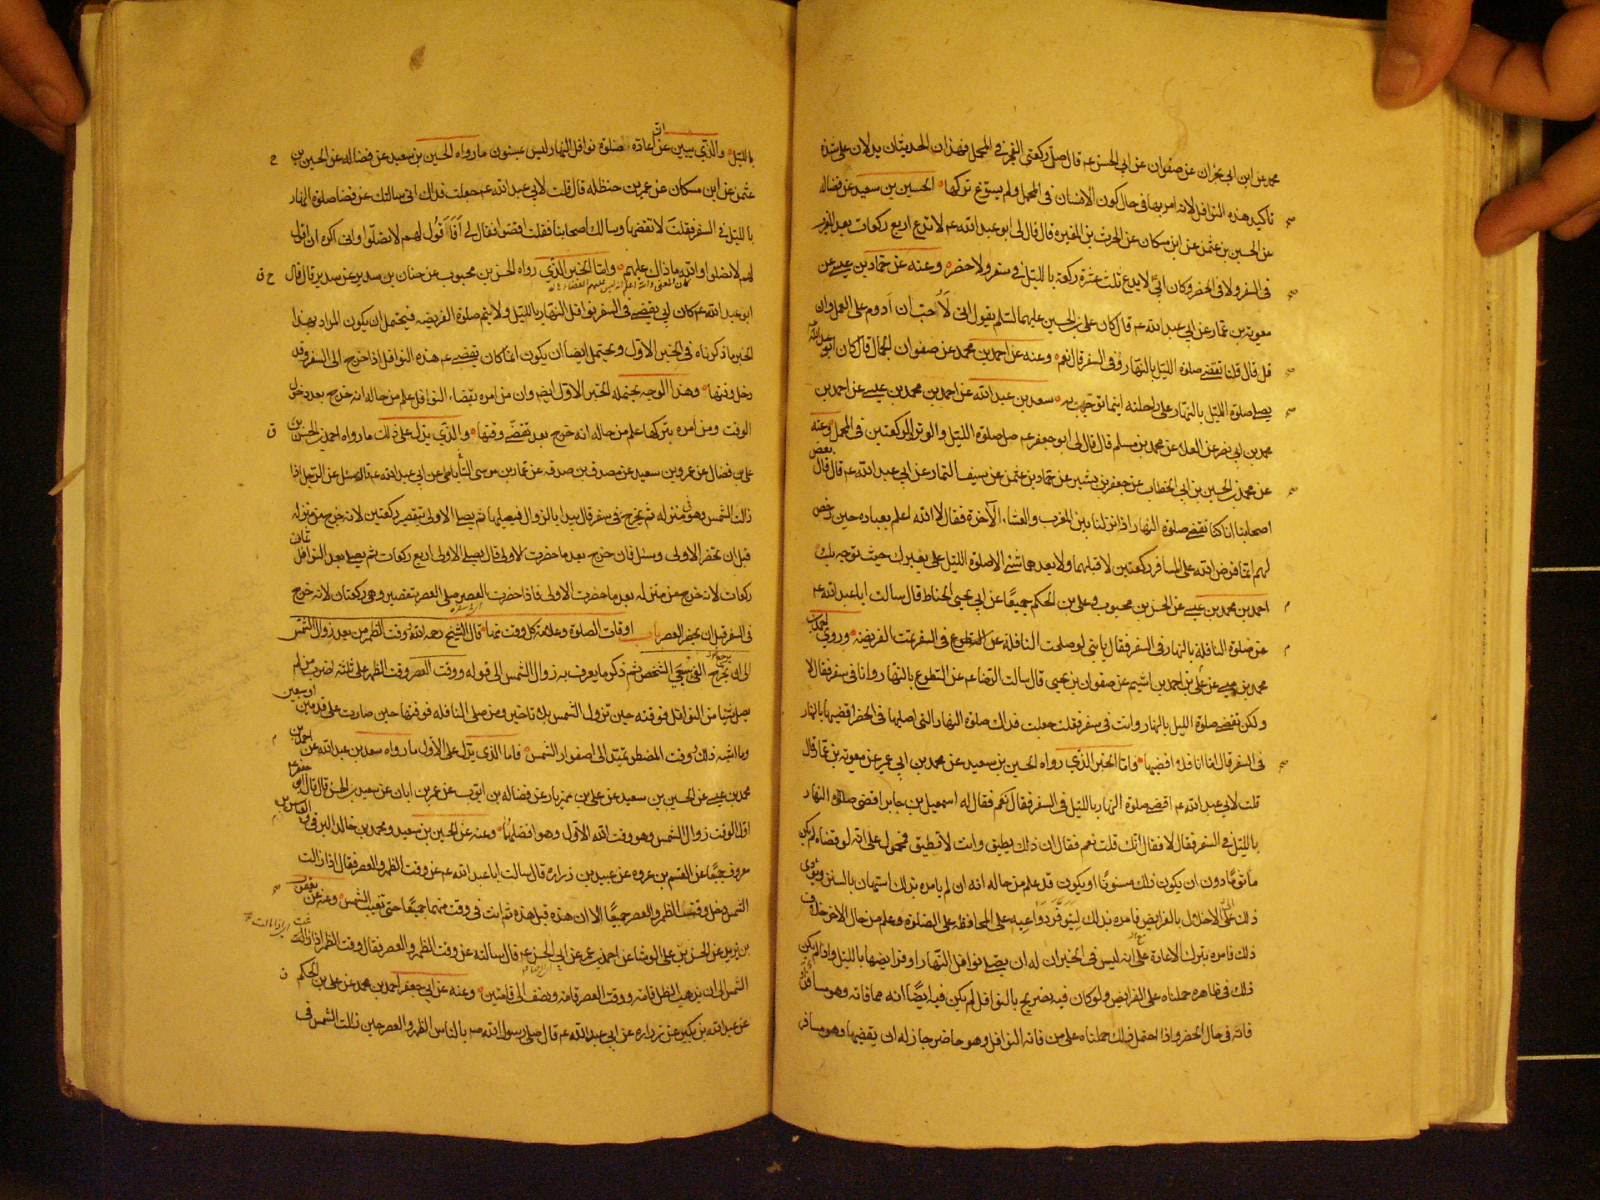 محمد عن ابن ابي نجران عن صفوان عن ابي الحسن عم قال صل ركعتي الفجر في المحمل فهذان الحديثان يدلان على شدة
تأكيد هذه النوافل لانه امر بها في حال كون الانسان في المحمل ولم يسوغ تركها الحسين بن سعيد عن فضاله
عن الحسين بن عثمن عن ابن مسكان عن الحرث بن المغيره قال قال لي ابو عبد الله عم لا تدع اربع ركعات بعد المغرب
في السفر ولا في الحضر وكان ابي لا يدع ثلث عشرة ركعة بالليل في سفر ولا حضر وعنه عن حماد بن عيسى عن
معوية بن عمار عن ابي عبد الله عم قال كان علي بن الحسين عليهما السلم يقول اني لأحب ان ادوم على العمل وان
قل قال قلنا نقضي صلوة الليل بالنهار في السفر قال نعم وعنه عن احمد بن محمد عن صفوان الجمال قال كان ابو عبد الله عم
يصلي صلوة الليل بالنهار على راحلته اينما توجهت به سعد بن عبد الله عن احمد بن محمد بن عيسى عن احمد بن
محمد بن ابي نصر عن العلا عن محمد بن مسلم قال قال لي ابو جعفر عم صل صلوة الليل والوتر والركعتين في المحمل وعنه
عن محمد بن الحسين بن ابي الخطاب عن جعفر بن بشير عن حماد بن عثمن عن سيف التمار عن ابي عبد الله عم قال قال بعض
اصحابنا انا كنا نقضي صلوة النهار اذا نزلنا بين المغرب والعشاء الآخرة فقال لا الله اعلم بعباده حين رخص
لهم انما فرض الله على المسافر ركعتين لا قبلهما ولا بعدهما شئ الا صلوة الليل على بعيرك حيث توجه بك
احمد بن محمد بن عيسى عن الحسن بن محبوب وعلي بن الحكم جميعا عن ابي يحيى الحناط قال سالت ابا عبد الله عم
عن صلوة النافلة بالنهار في السفر فقال يا بني لو صلحت النافلة في السفر تمت الفريضة وروى احمد بن
محمد بن عيسى عن علي بن احمد بن اشيم عن صفوان بن يحيى قال سالت الرضا عم عن التطوع بالنهار وانا في سفر فقال لا
ولكن تقضي صلوة الليل بالنهار وانت في سفر فقلت جعلت فداك صلوة النهار التي اصليها في الحضر اقضيها بالنهار
في السفر قال اما انا فلا اقضيها واما الخبر الذي رواه الحسين بن سعيد عن محمد بن ابي عمير عن معوية بن عمار قال
قلت لابي عبد الله عم اقضي صلوة النهار بالليل في السفر فقال نعم فقال له اسمعيل بن جابر اقضي صلوة النهار
بالليل في السفر فقال لا فقال انك قلت نعم فقال ان ذلك يطيق وانت لا تطيق فمحمول على انه لو قضاه لم يكن
مأثوما دون ان يكون ذلك مسنونا او يكون قد علم من حاله انه ان لم يامره بذلك استهان بالسنن
ذلك على الاخلال بالفرايض فامره بذلك ليتوفر دواعيه على المحافظة على الصلوة وعلم من حال الاخر خلاف
ذلك فامره بترك الاعادة على انه ليس في الخبر ان له ان يصلي نوافل النهار او فرايضها بالليل واذا لم يكن
ذلك في ظاهره حملناه على الفرايض ولو كان فيه تصريح بالنوافل لم يكن فيه ايضا انه مما فاته وهو مسافر
فاته في حال الحضر واذا احتمل ذلك حملناه على من فاته النوافل وهو حاضر جاز له ان يقضيها وهو مسافر
بالليل والذي يبين عن ان اعادة صلوة نوافل النهار ليس عسنون ما رواه الحسين بن سعيد عن فضاله عن الحسين بن
عثمن عن ابن مسكان عن عمر بن حنظلة قال قلت لابي عبد الله عم جعلت فداك اني سالتك عن قضا صلوة النهار
بالليل في السفر فقلت لا تقضها وسالك اصحابنا فقلت اقضوا فقال لي أفأقول لهم لا تصلوا واني اكره ان اقول
لهم لا تصلوا والله ما ذاك عليهم واما الخبر الذي رواه الحسن بن محبوب عن حنان بن سدير عن سدير قال قال
ابو عبد الله عم كان ابي يقضي في السفر نوافل النهار بالليل ولا يتم صلوة الفريضه فيحتمل ان يكون المراد بهذا
الخبر ما ذكرناه في الخبر الاول ويحتمل ايضا ان يكون انما كان يقضي عم هذه النوافل اذا خرج الى السفر وقد
دخل وقتها وهذا الوجه يحتمله الخبر الاول ايضا وان من امره بقضاء النوافل علم من حاله انه خرج بعد دخول
الوقت ومن امره بتركها علم من حاله انه خرج بعد تقضي وقتها والذي يدل على ذلك ما رواه احمد بن الحسن بن
علي بن فضال عن عمرو بن سعيد عن مصدق بن صدقه عن عمار بن موسى الساباطي عن ابي عبد الله عم قال سئل عن الرجل اذا
زالت الشمس وهو في منزله ثم يخرج في سفر قال يبدا بالزوال فيصليها ثم يصلي الاولى بتقصير ركعتين لانه خرج من منزله
قبل ان تحضر الاولى وسئل فان خرج بعد ما حضرت الاولى قال يصلي الاولى اربع ركعات ثم يصلي بعد النوافل ثمان
ركعات لانه خرج من منزله بعد ما حضرت الاولى فاذا حضرت العصر صلى العصر بتقصير وهي ركعتان لانه خرج
في السفر قبل ان يحضر العصر باب اوقات الصلوة وعلامة كل وقت منها قال الشيخ رحمه الله وقت الظهر من بعد زوال الشمس
الى ان يرجع الفئ سبعي الشخص ثم ذكر ما يعرف به زوال الشمس الى قوله ووقت العصر وقت الظهر على ثلثة اضرب من لم
يصل شيا من النوافل فوقته حين تزول الشمس بلا تاخير ومن صلى النافلة فوقتها حين صارت على قدمين او سبعين
وما اشبه ذلك ووقت المضطر يمتد الى اصفرار الشمس فاما الذي يدل على الاول ما رواه سعد بن عبد الله عن احمد بن
محمد بن عيسى عن الحسين بن سعيد عن علي بن مهزيار عن فضاله بن ايوب عن عمر بن ابان عن سعيد بن الحسن قال قال ابو جعفر عم
اول الوقت زوال الشمس وهو وقت الله الاول وهو افضلهما وعنه عن الحسين بن سعيد ومحمد بن خالد البرقي والعباس بن
معروف جميعا عن القسم بن عروه عن عبيد بن زراره قال سالت ابا عبد الله عم عن وقت الظهر والعصر فقال اذا زالت
الشمس دخل وقت الظهر والعصر جميعا الا ان هذه قبل هذه ثم انت في وقت منهما جميعا حتى تغيب الشمس وعنه عن يعقوب
بن يزيد عن الحسن بن علي الوشا عن احمد بن عمر عن ابي الحسن عم قال سالته عن وقت الظهر والعصر فقال وقت الظهر اذا زالت
الشمس الى ان يذهب الظل قامة ووقت العصر قامة ونصف الى قامتين وعنه عن ابي جعفر احمد بن محمد عن علي بن الحكم
عن عبد الله بن بكير عن زراره عن ابي عبد الله عم قال صلى رسول الله صم بالناس الظهر والعصر حين زالت الشمس في